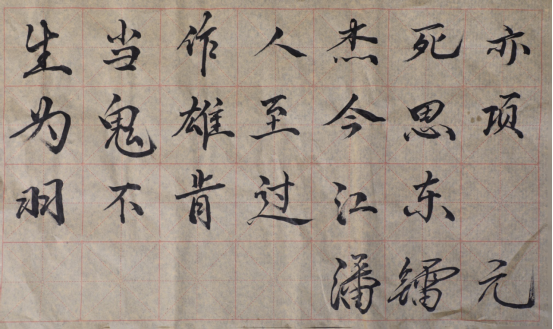 生当作人杰死亦
为鬼雄至今思项
羽不肯过江东
潘镭元